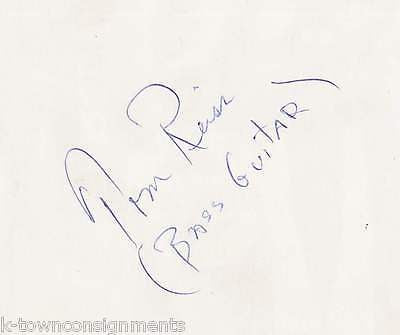 Tom Reisn
(BASS GUITAR)
k-townconsignments